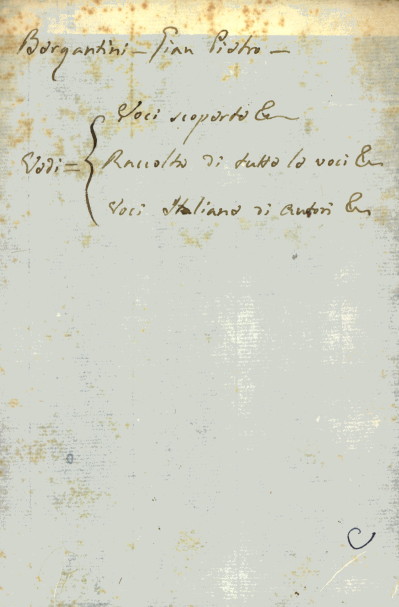 Bergantini - Gian Pietro -
Voci scoperte &c
Vedi = { Raccolta di tutte le voci &c
Voci Italiane di Autori &c